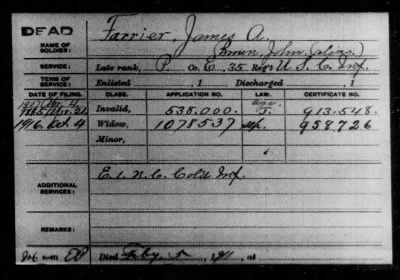 DEAD
NAME OF SOLDIER: Farrier, James A.
(Brown, John, alias.)
SERVICE: Late rank, P. Co. E, 35 Reg't U.S.C. Inf.
TERM OF SERVICE: Enlisted , 1 Discharged , 1
DATE OF FILING. CLASS. APPLICATION NO. LAW. CERTIFICATE NO.
Invalid, 538.000. 913.548.
1916. Oct. 4 Widow, 1078537 958726
Minor,
ADDITIONAL SERVICES: E. 1. N.C. Cold Inf.
REMARKS:
Died Feby. 5, at